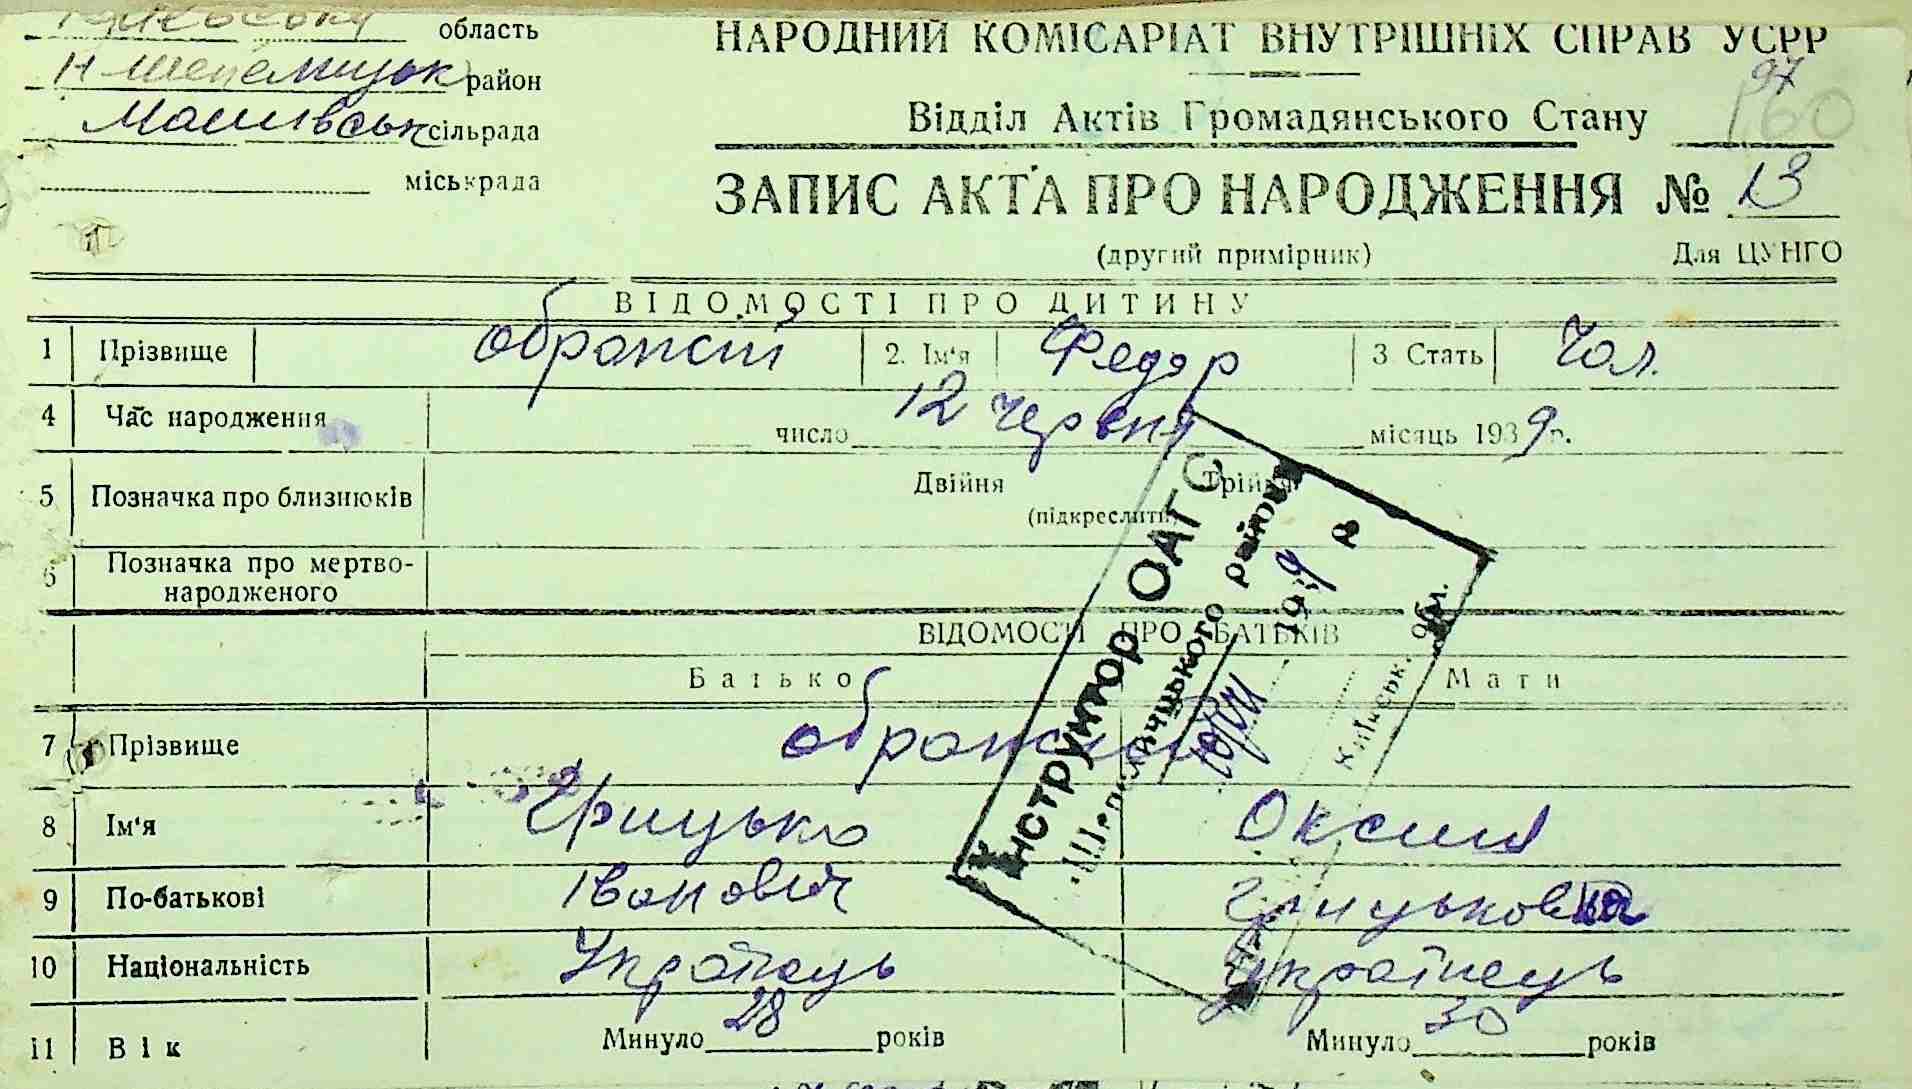 область
район
сільрада
міськрада
НАРОДНИЙ КОМІСАРІАТ ВНУТРІШНІХ СПРАВ УСРР
97
Відділ Актів Громадянського Стану 160
ЗАПИС АКТА ПРО НАРОДЖЕННЯ № 13
(другий примірник) Для ЦУНГО
ВІДОМОСТІ ПРО ДИТИНУ
1 Прізвище 2. Ім'я Федор 3 Стать Чол.
4 Час народження число 12 червня місяць 1939 р.
5 Позначка про близнюків Двійня Трійня
(підкреслити)
6 Позначка про мертво-
народженого
ВІДОМОСТІ ПРО БАТЬКІВ
Батько Мати
7 Прізвище
8 Ім'я Грицько Оксина
9 По-батькові Іванович Грицьковна
10 Національність Українець українець
11 Вік Минуло 28 років Минуло 30 років
Інструктор ОАГС
району
1939 р
Київськ. обл.